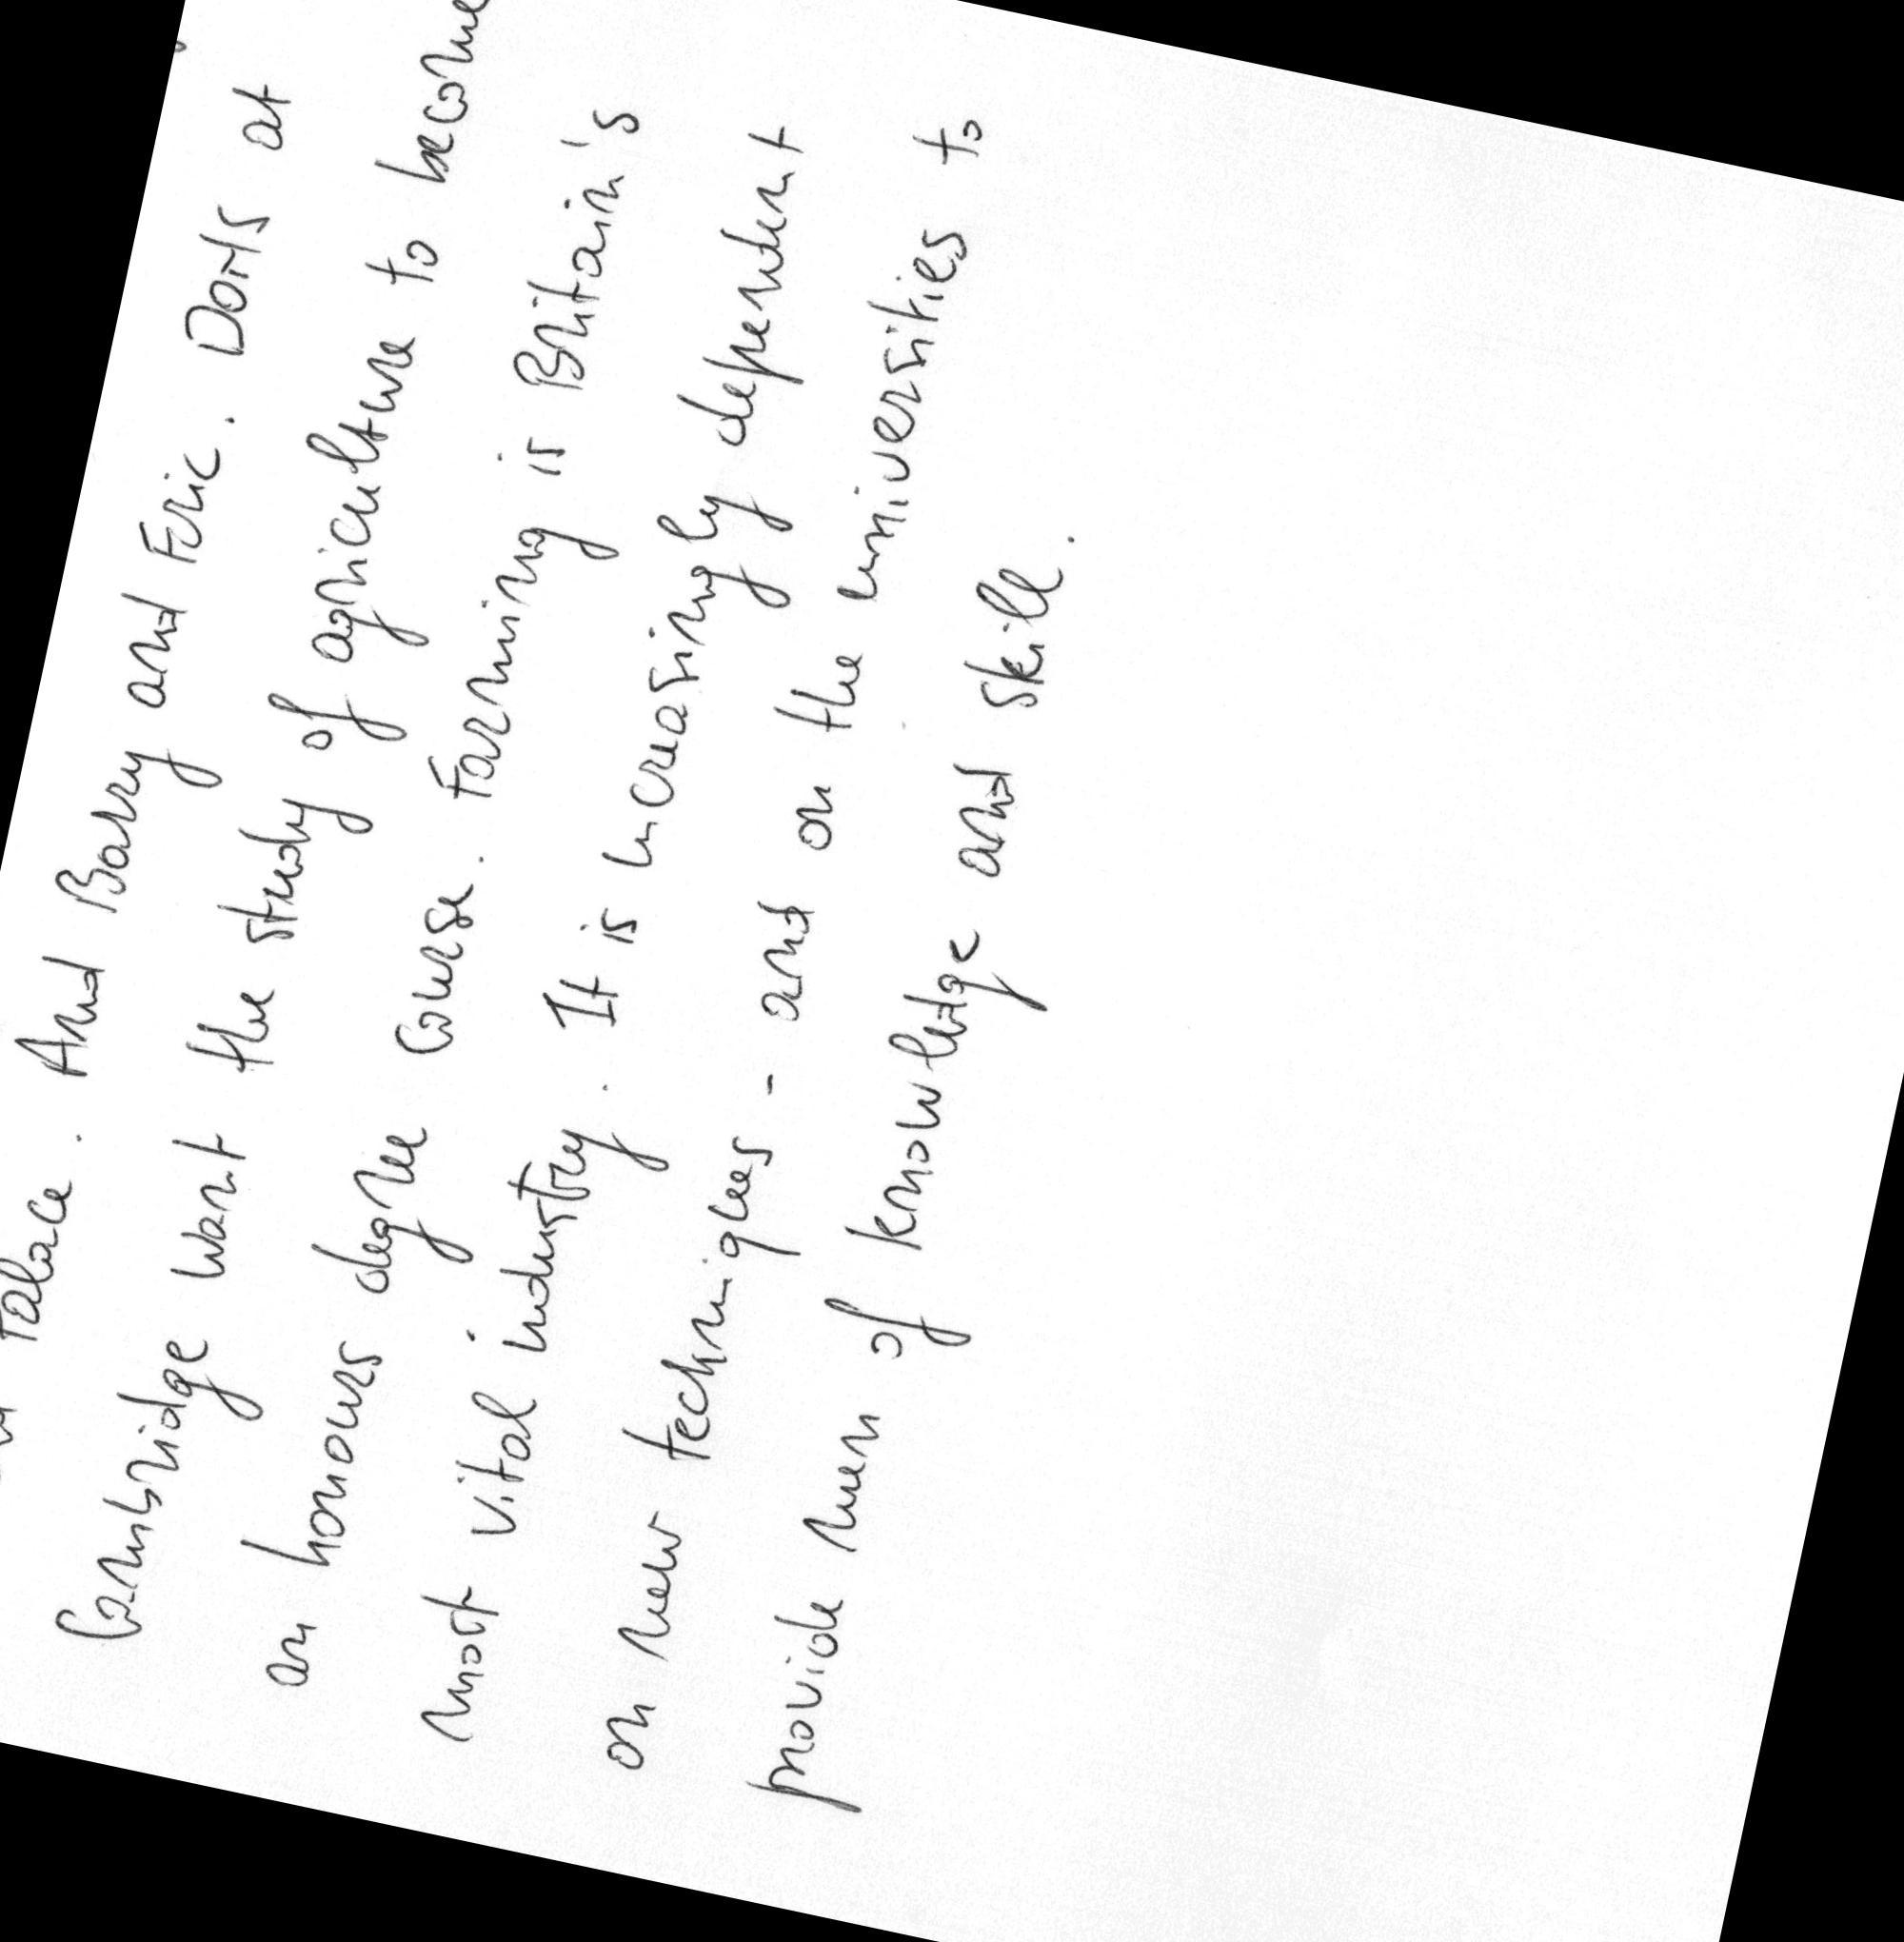 Palace. And Barry and Eric. Dons at
Cambridge want the study of agriculture to become
an honours degree course. Farming is Britain's
most vital industry. It is increasingly dependent
on new techniques - and on the universities to
provide men of knowledge and skill.